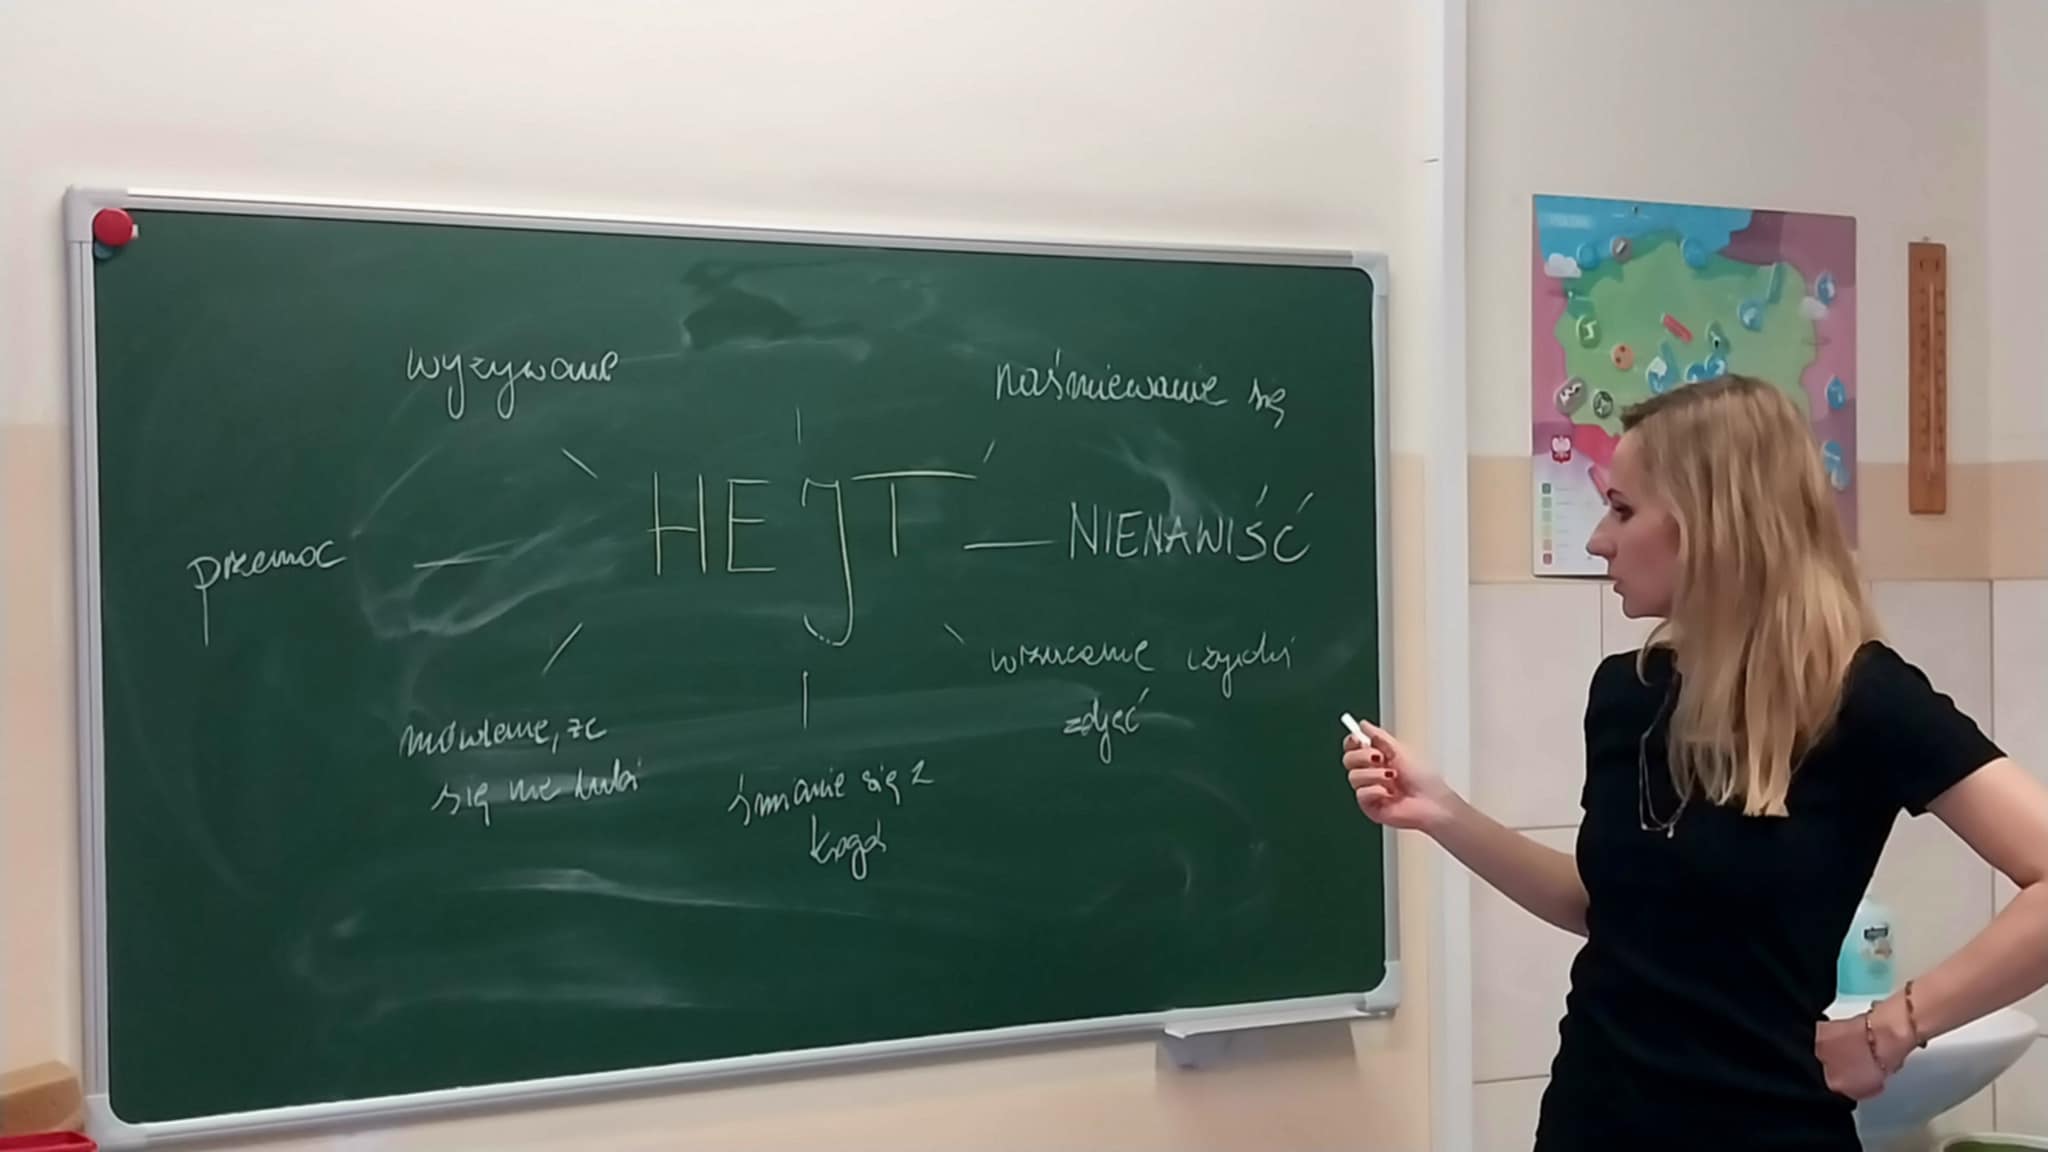 wyzywanie
naśmiewanie się
HEJT — NIENAWIŚĆ
przemoc
wrzucanie czyichś
zdjęć
mówienie, że
się nie lubi
śmianie się z
kogoś